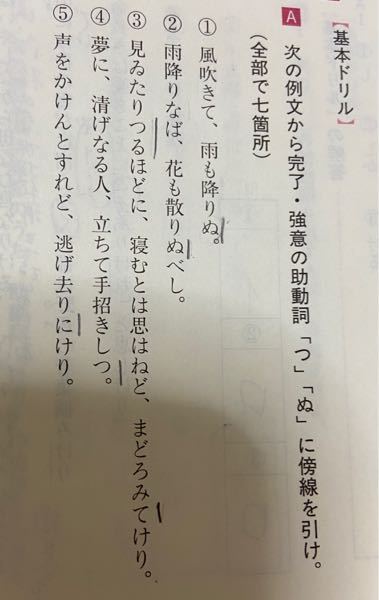 【基本ドリル】
A 次の例文から完了・強意の助動詞「つ」「ぬ」に傍線を引け。
(全部で七箇所)
① 風吹きて、雨も降りぬ。
② 雨降りなば、花も散りぬべし。
③ 見ゐたりつるほどに、寝むとは思はねど、まどろみてけり。
④ 夢に、清げなる人、立ちて手招きしつ。
⑤ 声をかけんとすれど、逃げ去りにけり。